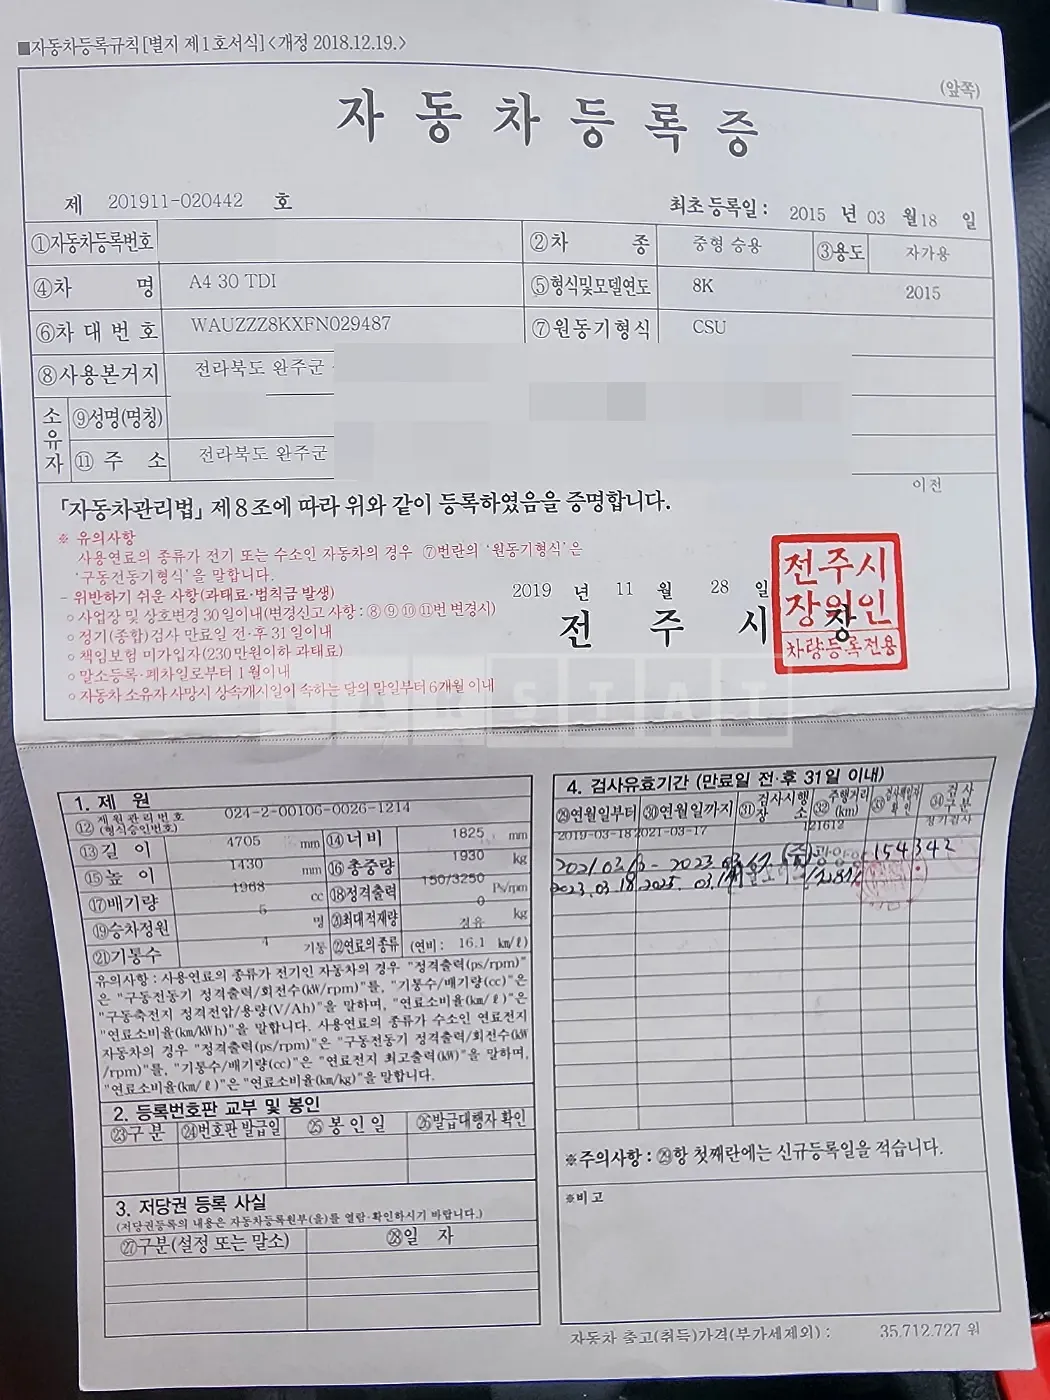 ■자동차등록규칙[별지 제1호서식]<개정 2018.12.19.>
(앞쪽)
자 동 차 등 록 증
제 201911-020442 호
최초등록일: 2015 년 03 월 18 일
①자동차등록번호
②차 종 중형 승용 ③용도 자가용
④차 명 A4 30 TDI ⑤형식및모델연도 8K 2015
⑥차대번호 WAUZZZ8KXFN029487 ⑦원동기형식 CSU
⑧사용본거지 전라북도 완주군
소유자 ⑨성명(명칭)
⑪주 소 전라북도 완주군
이전
「자동차관리법」 제8조에 따라 위와 같이 등록하였음을 증명합니다.
※ 유의사항
사용연료의 종류가 전기 또는 수소인 자동차의 경우 ⑦번란의 '원동기형식'은
'구동전동기형식'을 말합니다.
- 위반하기 쉬운 사항(과태료·범칙금 발생)
○ 사업장 및 상호변경 30일이내(변경신고 사항 : ⑧⑨⑩⑪번 변경시)
○ 정기(종합)검사 만료일 전·후 31일이내
○ 책임보험 미가입자(230만원이하 과태료)
○ 말소등록·폐차일로부터 1월이내
○ 자동차 소유자 사망시 상속개시일이 속하는 달의 말일부터 6개월 이내
2019 년 11 월 28 일
전 주 시 장
전주시
장의인
차량등록전용
CARSTAT
1. 제 원
⑫제원관리번호 (형식승인번호) 024-2-00106-0026-1214
⑬길 이 4705 mm ⑭너비 1825 mm
⑮높 이 1430 mm ⑯총중량 1930 kg
⑰배기량 1968 cc ⑱정격출력 150/3250 Ps/rpm
⑲승차정원 5 명 ⑳최대적재량 0 kg
㉑기통수 4 기통 ㉒연료의종류 경유 (연비 : 16.1 km/ℓ)
유의사항 : 사용연료의 종류가 전기인 자동차의 경우 "정격출력(ps/rpm)"
은 "구동전동기 정격출력/회전수(kW/rpm)"를, "기통수/배기량(cc)"은
"구동축전지 정격전압/용량(V/Ah)"을 말하며, "연료소비율(km/ℓ)"은
"연료소비율(km/kWh)"을 말합니다. 사용연료의 종류가 수소인 연료전지
자동차의 경우 "정격출력(ps/rpm)"은 "구동전동기 정격출력/회전수(kW
/rpm)"를, "기통수/배기량(cc)"은 "연료전지 최고출력(kW)"을 말하며,
"연료소비율(km/ℓ)"은 "연료소비율(km/kg)"을 말합니다.
2. 등록번호판 교부 및 봉인
㉓구 분 ㉔번호판 발급일 ㉕봉 인 일 ㉖발급대행자 확인
3. 저당권 등록 사실
(저당권등록의 내용은 자동차등록원부(을)를 열람·확인하시기 바랍니다.)
㉗구분(설정 또는 말소) ㉘일 자
4. 검사유효기간 (만료일 전·후 31일 이내)
㉙연월일부터 ㉚연월일까지 ㉛검사시행장소 ㉜주행거리(km) ㉝검사책임자확인 ㉞검사구분
2019-03-18 2021-03-17 121612 정기검사
2023.03.18 2025.03.17
※주의사항 : ㉙항 첫째란에는 신규등록일을 적습니다.
※비고
자동차 출고(취득)가격(부가세제외) : 35,712,727 원